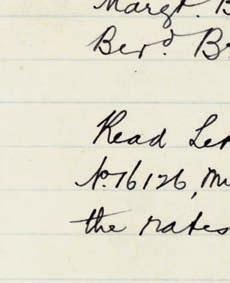 Margt. B
Berd. Br
Read Let
No. 16126, Mr
the rates